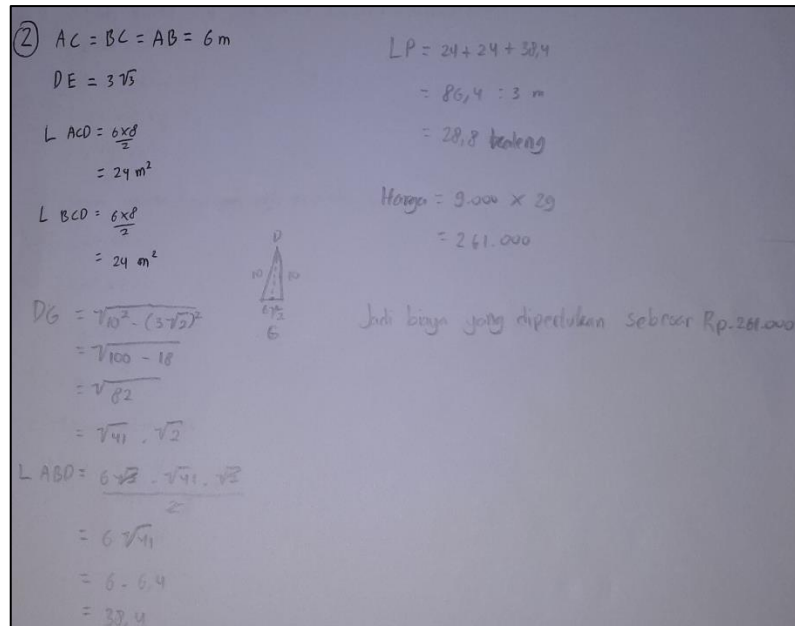 2 AC = BC = AB = 6 m
DE = 3√3
L ACD = 6×8/2
= 24 m²
L BCD = 6×8/2
= 24 m²
DG = √10² - (3√2)²
= √100 - 18
= √82
= √41 . √2
L ABD = 6√2 . √41 . √2 / 2
= 6 √41
= 6 . 6,4
= 38,4
D
10 10
6√2
G
LP = 24 + 24 + 38,4
= 86,4 : 3 m
= 28,8 kaleng
Harga = 9.000 × 29
= 261.000
Jadi biaya yang diperlukan sebesar Rp.261.000